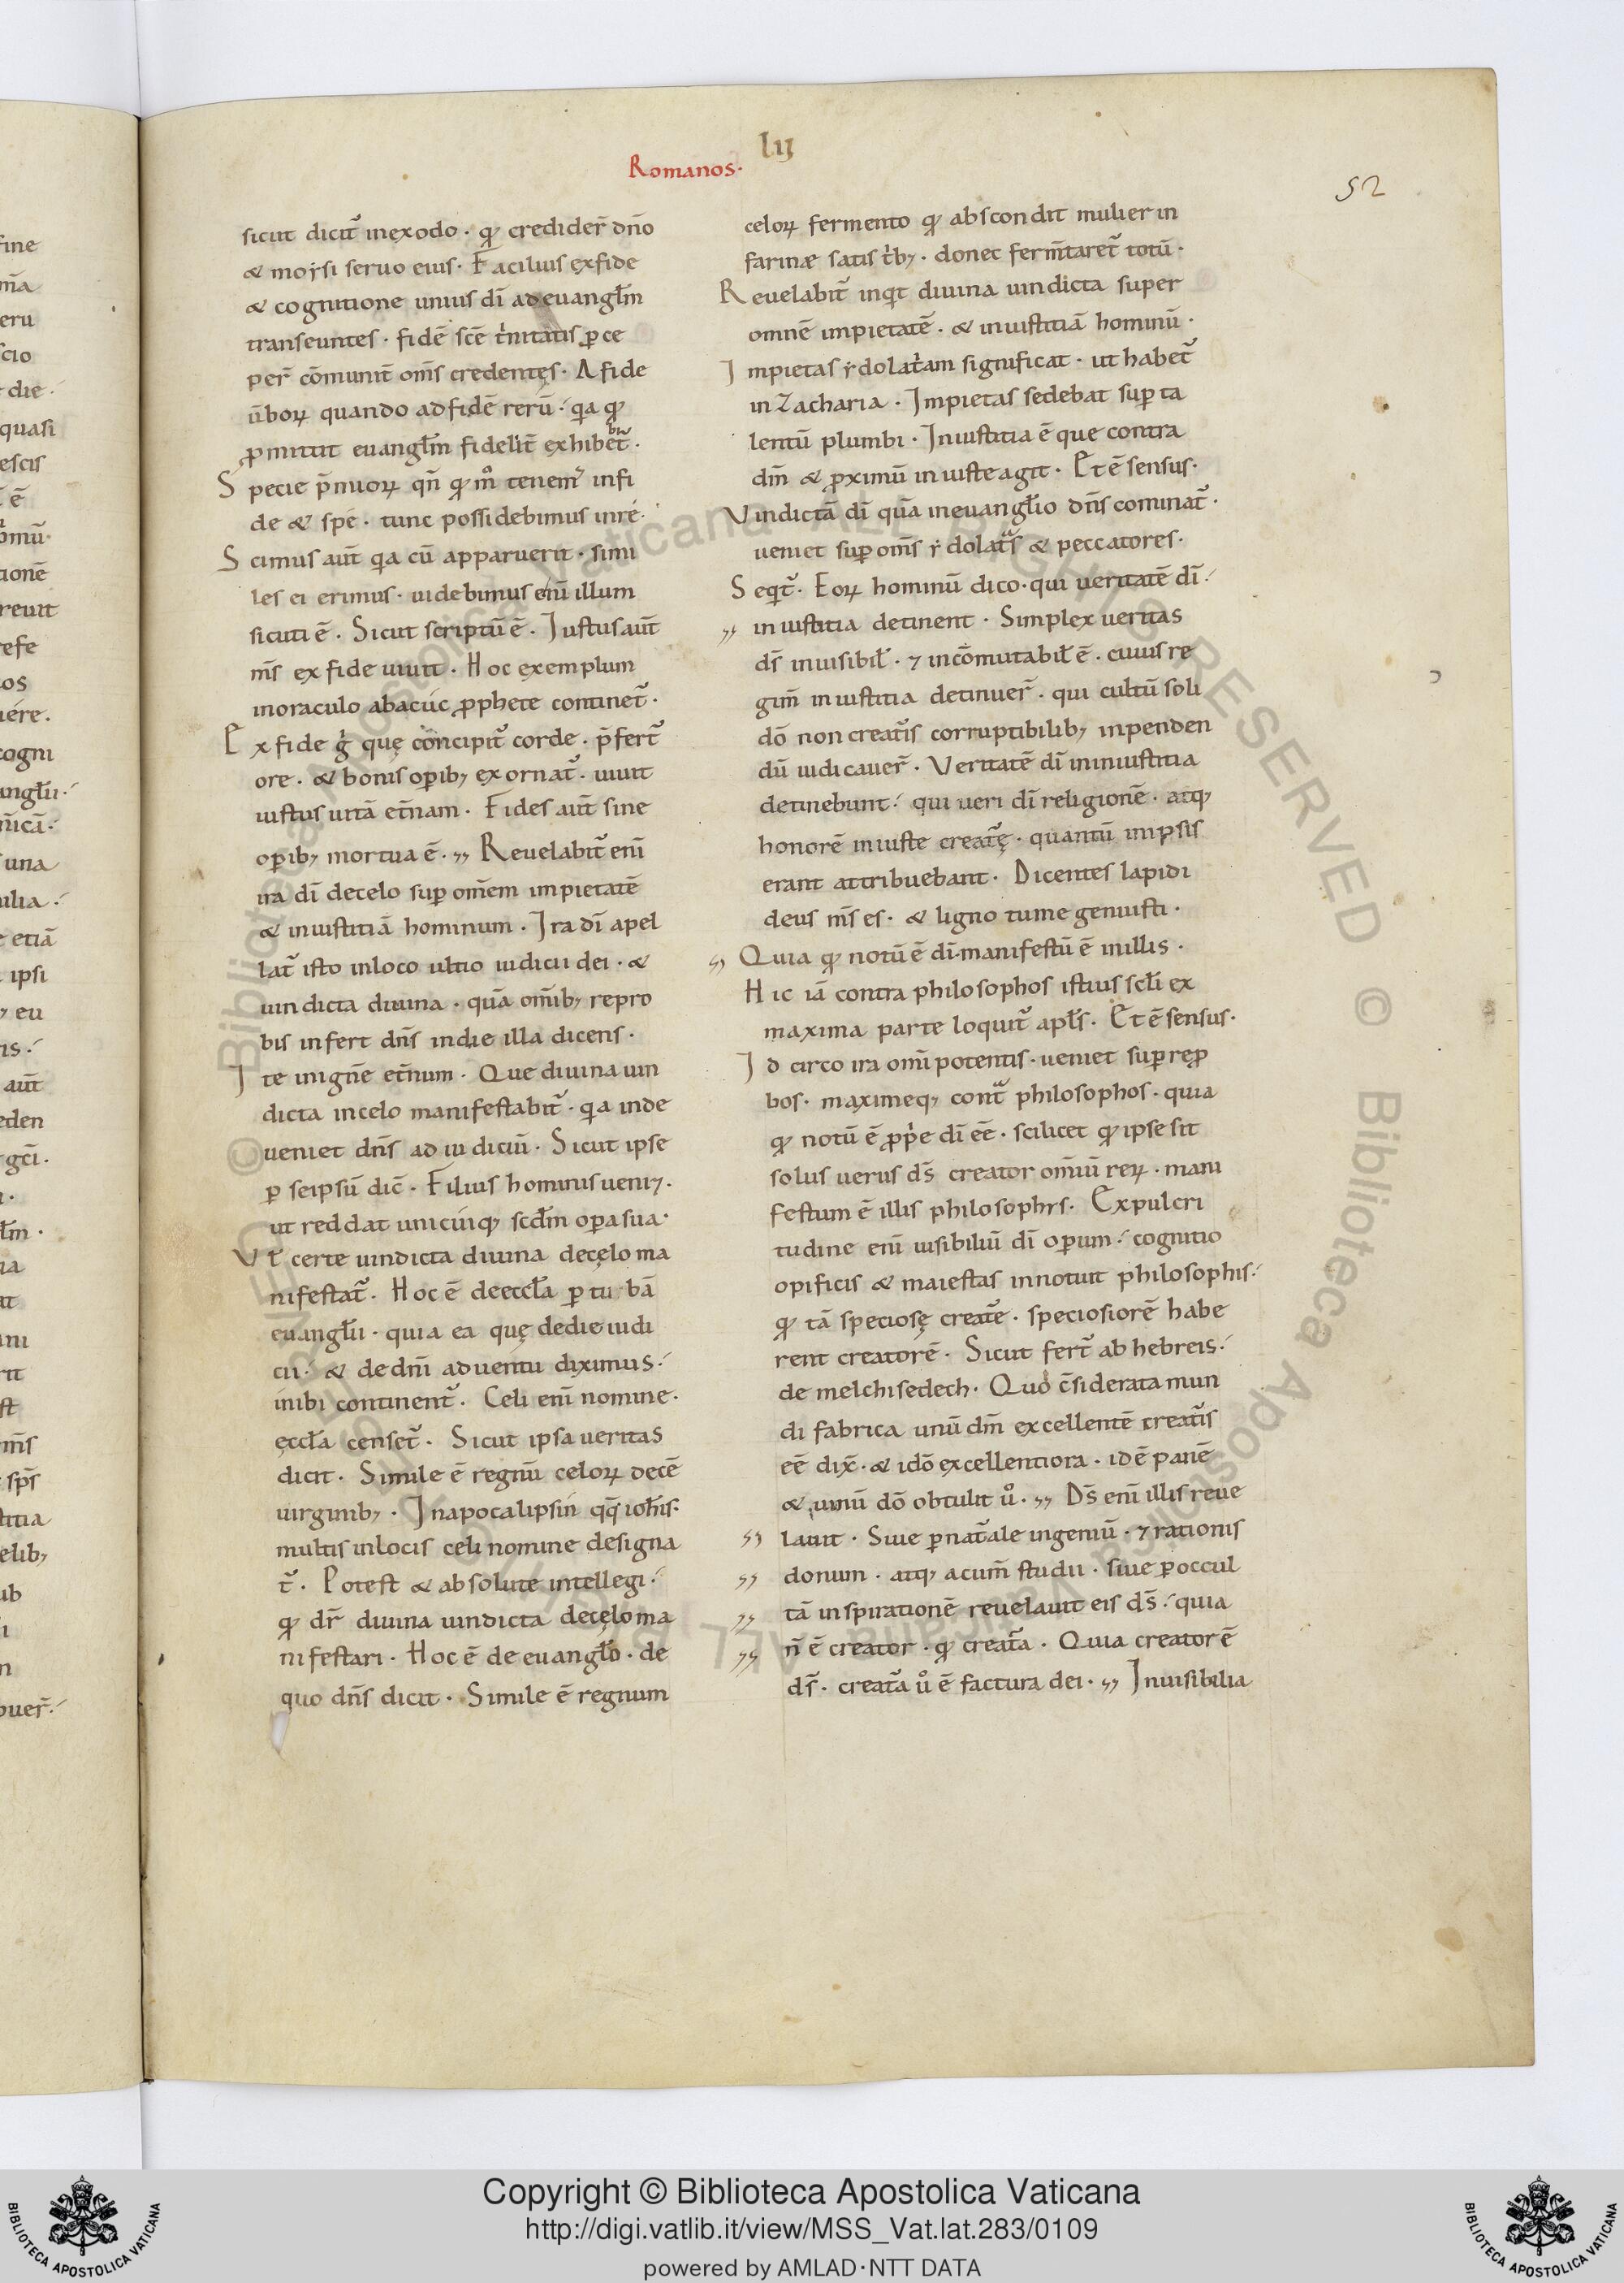 lij
Romanos.
52
sicut dicit᷑ inexodo · qđ credider̄ dn̄o
& moẏsi seruo eius · Facilius exfide
& cognitione unius dī ad euangłm̄
transeuntes · fidē scē t̍nitatis ꝑce
per̄ cōmunit᷑ om̄s credentęs · A fide
ūboꝝ quando adfidē rerū · qͥa qđ
ꝓmittit euangłm̄ fidelit̄ exhibebit᷑ ·
Specie p̄miioꝝ qn̄ qđ m̊ tenem᷑ infi
de & spe · tunc possidebimus inre ·
Scimus aut̄ qͥa cū apparuerit · simi
les ei erimus · uidebimus eni̅ illum
sicuti ē · Sicut scriptū ē · Iustus aut̄
m̄s ex fide uiuit · Hoc exemplum
inoraculo abacuc ꝓphete continet᷑ ·
Ex fide g̍ quę concipit᷑ corde · p̄fert᷑
ore · & bonis oꝑibꝫ exornat᷑ · uiuit
iustus uitā et̄nam · Fides aut̄ sine
oꝑibꝫ mortua ē · Reuelabit᷑ eni̅
ira dī decelo suꝑ om̄em impietatē
& iniustitiā hominum · Ira dī apel
lat᷑ isto inloco ultio iudicii dei · &
uindicta diuina · quā om̄ibꝫ repro
bis infert dn̄s indie illa dicens ·
Ite inigne̅ et̄num · Que diuina uin
dicta incelo manifestabit᷑ · qͥa inde
ueniet dn̄s ad iudiciū · Sicut ipse
ꝑ seipsū dic̄ · Filius hominis ueniꝫ ·
ut reddat unicuiqꝫ scđm oꝑa sua ·
Vł certe uindicta diuina decęlo ma
nifestat᷑ · Hoc ē deecclła ꝑ turbā
euangłii · quia ea quę dedie iudi
cii · & dedn̄i aduentu diximus ·
inibi continent᷑ · Celi eni̅ nomine ·
ęccła censet᷑ · Sicut ipsa ueritas
dicit · Simile ē regnū celoꝝ decē
uirginibꝫ · Inapocalipsin qq̄ ioh̄is ·
multis inlocis celi nomine designa
t᷑ · Potest & absolute intellegi ·
qđ dr̄ diuina uindicta decęlo ma
nifestari · Hoc ē de euangło · de
quo dn̄s dicit · Simile ē regnum
celoꝝ fermento qđ abscondit mulier in
farinæ satis t̍bꝫ · donec ferm̄taret᷑ totū ·
Reuelabit᷑ inqͥt diuina uindicta super
omnē impietatē · & iniustitiā hominū ·
Impietas ẏdolat̍am significat · ut habet᷑
in Zacharia · Impietas sedebat suꝑ ta
lentū plumbi · Iniustitia ē que contra
dm̄ & ꝓximū iniuste agit · Et ē sensus ·
Vindictā dī quā ineuangłio dn̄s cominat᷑ ·
ueniet suꝑ om̄s ẏdolat̾s & peccatores ·
Seqͥt᷑ · Eoꝝ hominū dico · qui ueritatē dī ·
iniustitia detinent · Simplex ueritas
ds̄ inuisibił · ⁊ incōmutabił ē · cuius re
gim̄ iniustitia detinuer̄ · qui cultū soli
dō non creat᷑is corruptibilibꝫ inpenden
dū iudicauer̄ · Veritatē dī ininiustitia
detinebunt · qui ueri dī religionē · atqꝫ
honorē iniuste creat᷑ę · quantū inipsis
erant attribuebant · Dicentes lapidi
deus m̄s es · & ligno tu me genuisti ·
Quia qđ notū ē dī · manifestū ē inillis ·
Hic iā contra philosophos istius sc̄li ex
maxima parte loquit᷑ apłs · Et ē sensus ·
Idcirco ira om̄ipotentis · ueniet suꝑ reꝓ
bos · maximeqꝫ cont̾ philosophos · quia
qđ notū ē ꝓp̍e dī eē · scilicet qđ ipse sit
solus uerus ds̄ creator om̄iū reꝝ · mani
festum ē illis philosophis · Expulcri
tudine eni̅ uisibiliū dī oꝑum · cognitio
opificis & maiestas innotuit philosophis ·
qđ tā speciosę creat᷑e · speciosiorē habe
rent creatorē · Sicut fert᷑ ab hebreis ·
de melchisedech · Quo c̄siderata mun
di fabrica unū dm̄ excellentē creat᷑is
eē dix̄ · & idō excellentiora · idē panē
& uinū dō obtulit ů · Ds̄ eni̅ illis reue
lauit · Siue ꝑ nat᷑ale ingeniū · ⁊ rationis
donum · atqꝫ acum̄ studii · siue ꝑ occul
tā inspirationē reuelauit eis ds̄ · quia
n̄ ē creator · qđ creat᷑a · Quia creator ē
ds̄ · creat᷑a ů ē factura dei · Inuisibilia
Copyright © Biblioteca Apostolica Vaticana
http://digi.vatlib.it/view/MSS_Vat.lat.283/0109
powered by AMLAD·NTT DATA